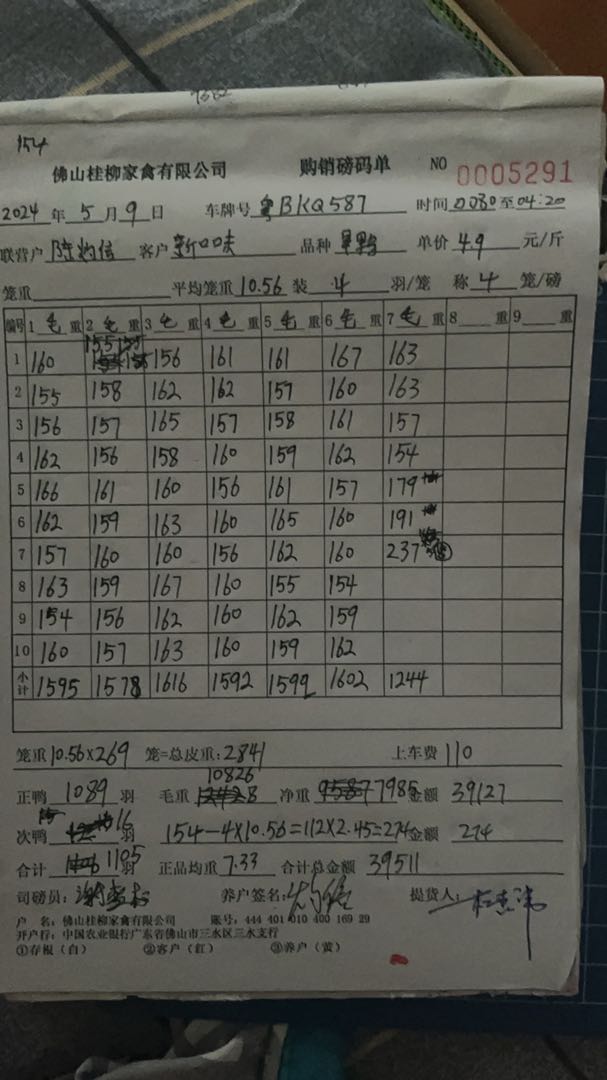 154
佛山桂柳家禽有限公司 购销磅码单 NO 0005291
2024 年 5 月 9 日 车牌号 粤BKQ587 时间 至 04:20
联营户 客户 新口味 品种 单价 4.9 元/斤
笼重 平均笼重 10.56 装 4 羽/笼 称 4 笼/磅
编号 1 毛 重 2 毛 重 3 毛 重 4 毛 重 5 毛 重 6 毛 重 7 毛 重 8 重 9 重
1 160 155 156 161 161 167 163
2 155 158 162 162 157 160 163
3 156 157 165 157 158 161 157
4 162 156 158 160 159 162 154
5 166 161 160 156 161 157 179
6 162 159 163 160 165 160 191
7 157 160 160 156 162 160 237
8 163 159 167 160 155 154
9 154 156 162 160 162 159
10 160 157 163 160 159 162
小计 1595 1578 1616 1592 1599 1602 1244
笼重 10.56×269 笼=总皮重: 2841 上车费 110
正鸭 1089 羽 毛重 10826 净重 7985 金额 39127
次鸭 16 羽 154-4×10.56=112×2.45=274 金额 274
合计 1105 羽 正品均重 7.33 合计总金额 39511
司磅员: 养户签名: 提货人:
户 名: 佛山桂柳家禽有限公司 账号: 444 401 010 400 169 29
开户行: 中国农业银行广东省佛山市三水区三水支行
①存根(白) ②客户(红) ③养户(黄)